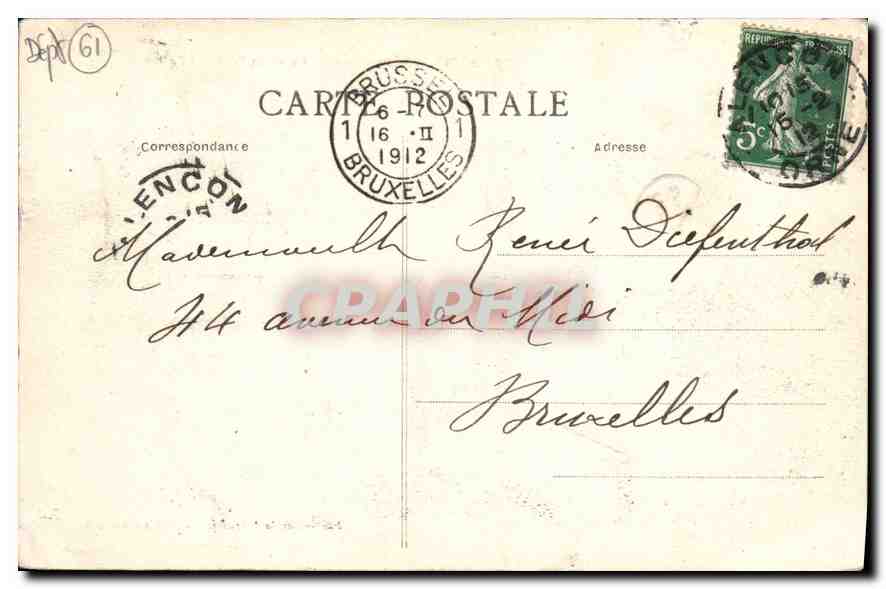 Dépt 61
REPUBLIQUE FRANÇAISE
5c
POSTES
ALENCON
ORNE
BRUSSEL
6-7
1 16 · II 1
1912
BRUXELLES
CARTE POSTALE
Correspondance
Adresse
ALENCON
Mademoiselle Renée Diefenthal
44 avenue du Midi
Bruxelles
CPAPHIL